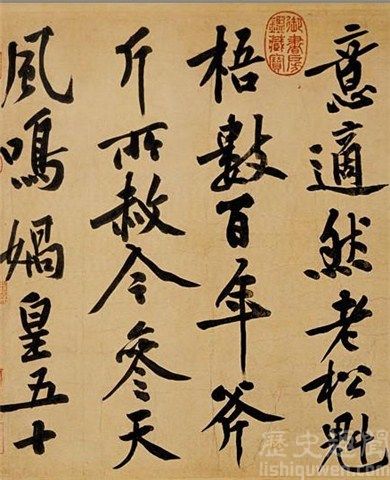 意適然老松魁
梧數百年斧
斤所赦今參天
風鳴媧皇五十
御書房
鑑藏寶
歷史趣聞
lishiquwen.com